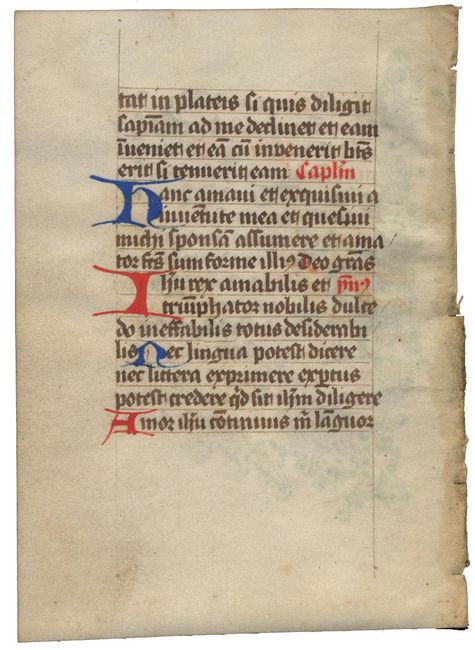 tat in plateis si quis diligit
sapiam ad me declinet et eam
iveniet et ea cu invenerit bts
erit si tenuerit eam Caplm
Hanc amavi et exquisivi a
iuventute mea et quesivi
michi sponsam assumere et ama
tor fcs sum forme illius Deo gras
Ihu rex amabilis et ymus
triumphator nobilis dulce
do ineffabilis totus desiderabi
lis Nec lingua potest dicere
nec littera exprimere exptus
potest credere qd sit ihm diligere
Amor ihu continuus m languor